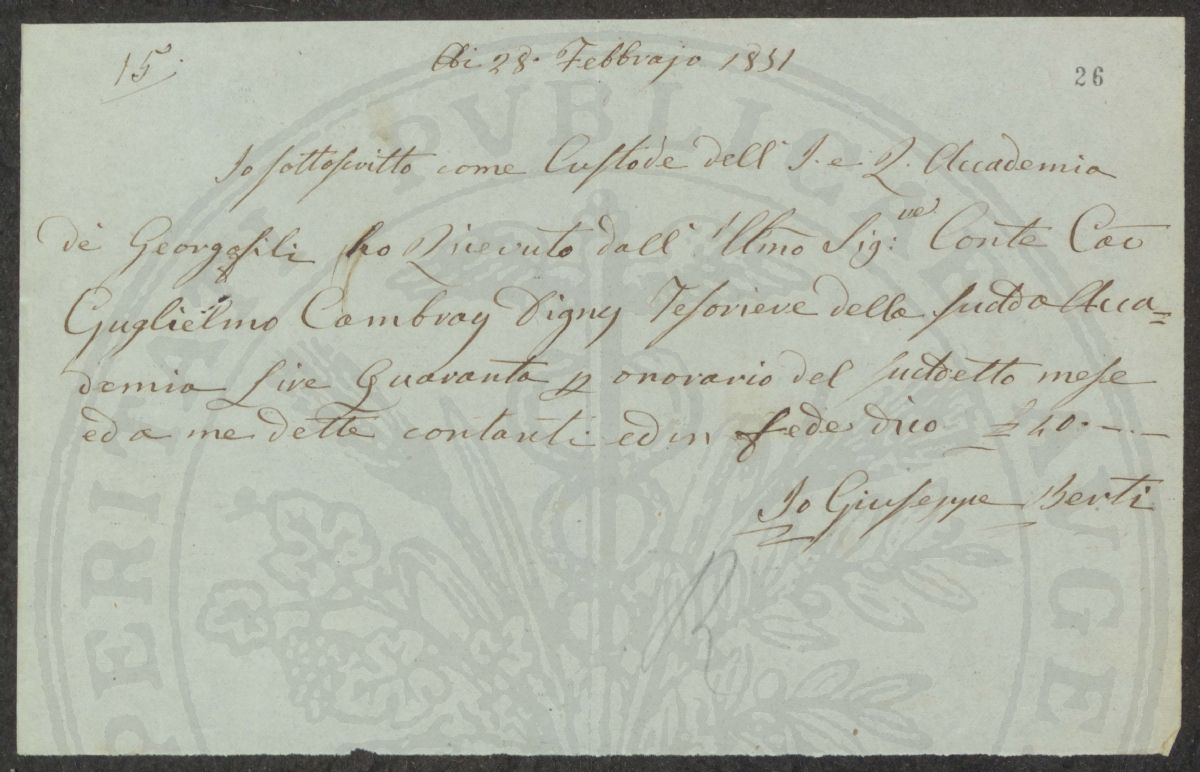 15.
Adi 28. Febbrajo 1851
26
Io sottoscritto come Custode dell' I. e R. Accademia
de Georgofili ho Ricevuto dall' Illmo Sig:re Conte Cav
Guglielmo Cambray Digny Tesoriere della sudda Acca=
demia Lire Quaranta p onorario del suddetto mese
ed a me dette contanti ed in fede dico £ 40. - . -
Io Giuseppe Berti
R
PERITATI PUBLICAE AUGE